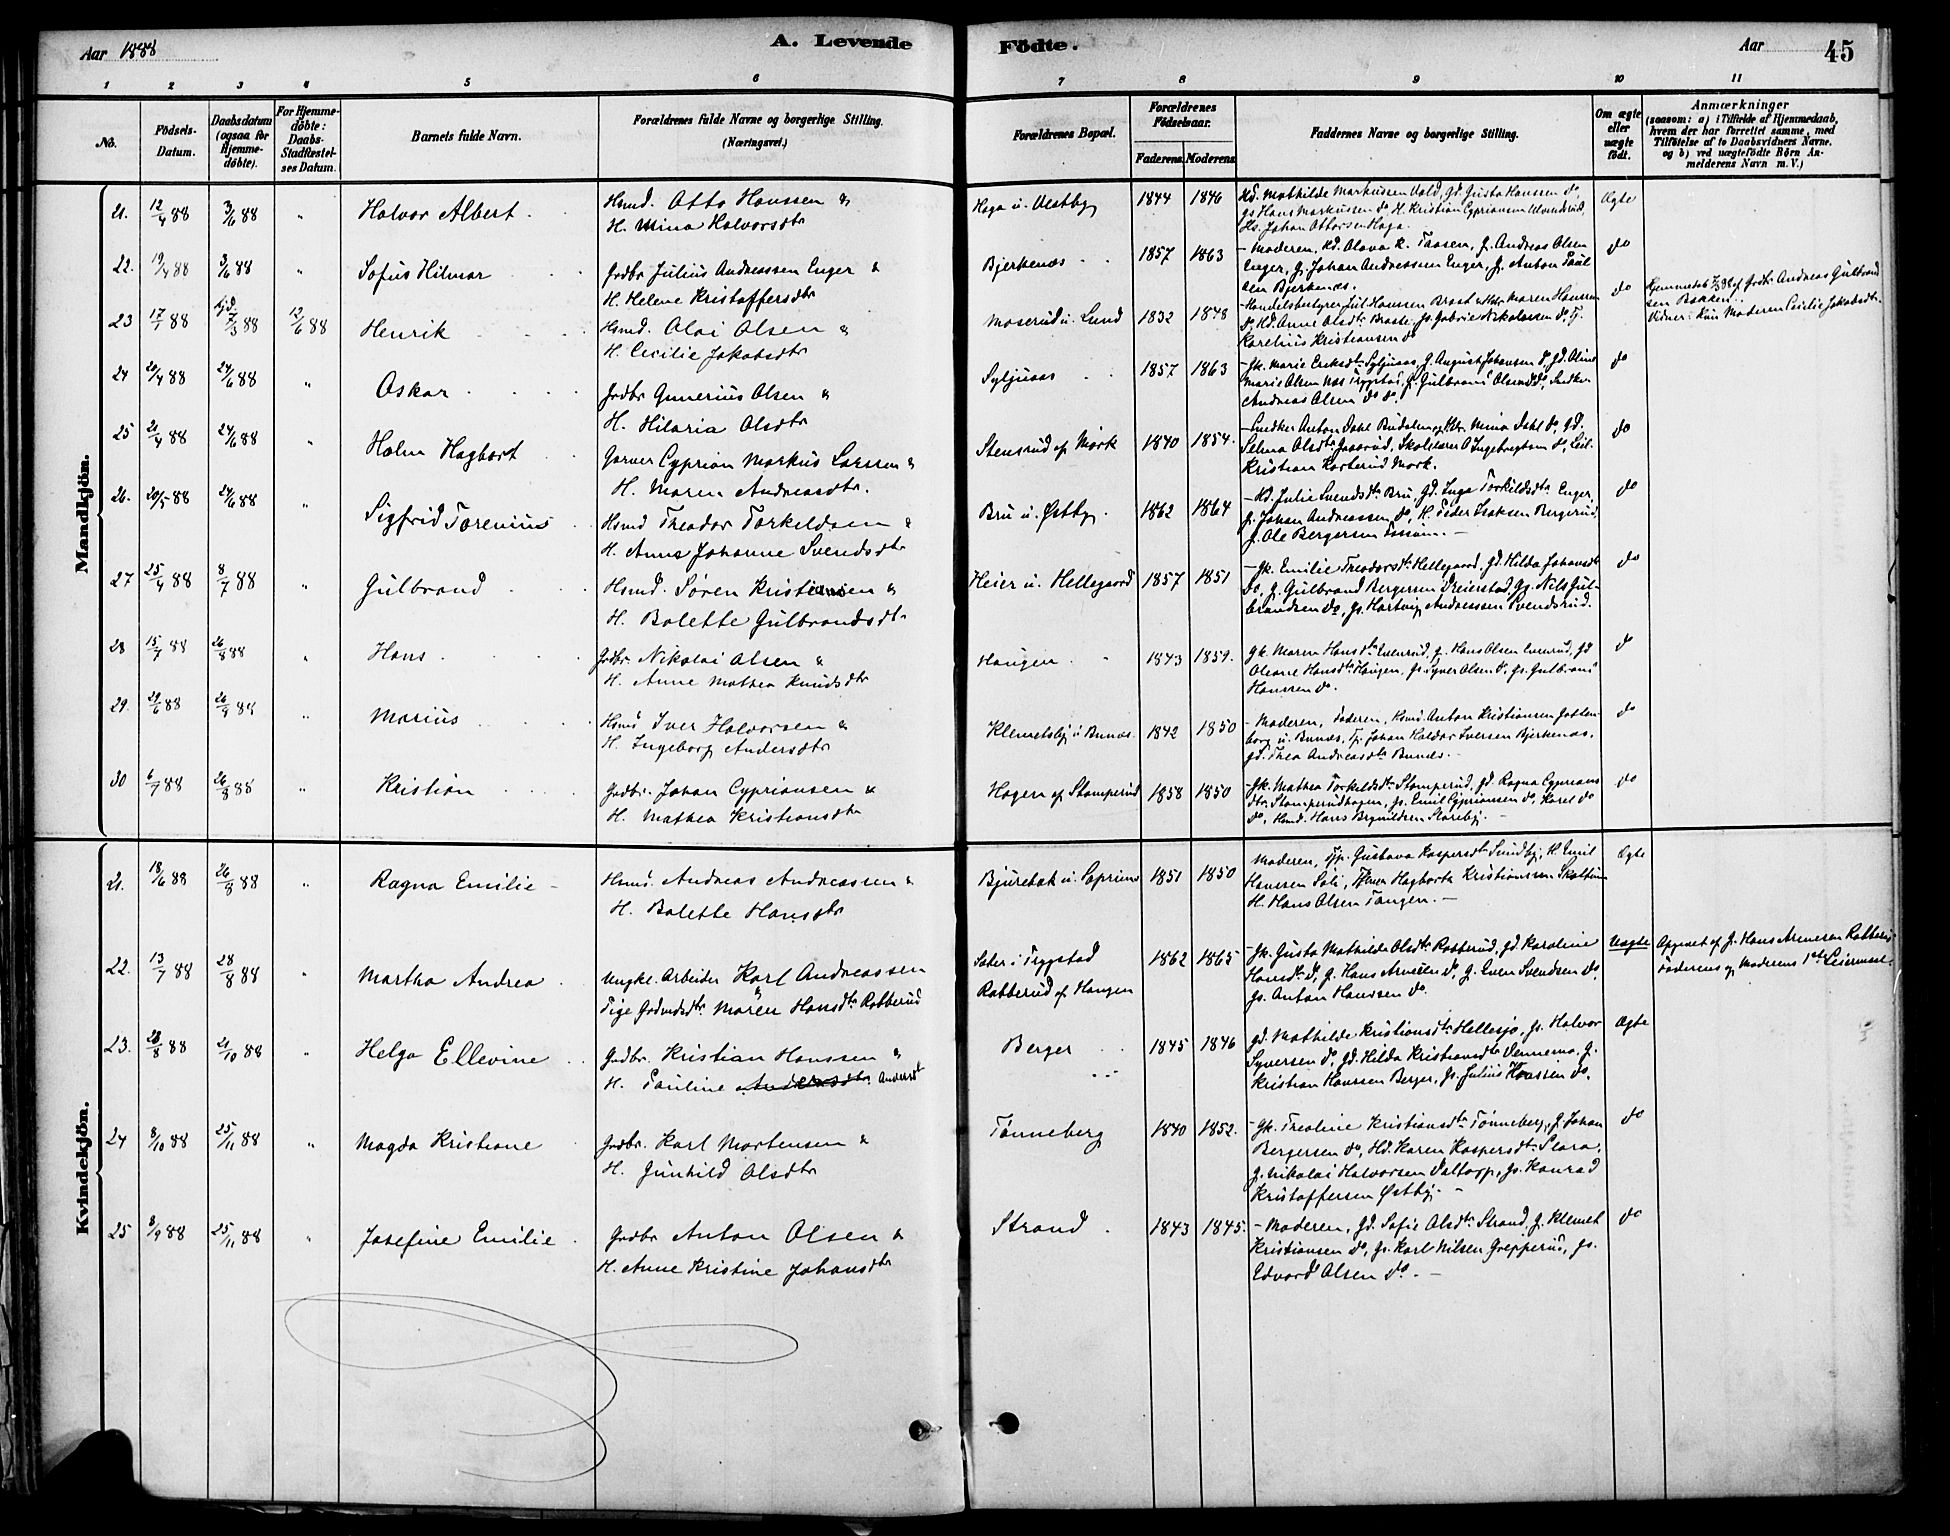 Aar 1888
A. Levende
Födte.
Aar
45
1 2 3 4 5 6 7 8 9 10 11
No.
Födsels-Datum.
Daabsdatum (ogsaa for Hjemmedöbte).
For Hjemmedöbte: Daabs-Stadfæstelses Datum.
Barnets fulde Navn.
Forældrenes fulde Navne og borgerlige Stilling.
(Næringsvei.)
Forældrenes Bopæl.
Forældrenes Födselsaar.
Faderens. Moderens.
Faddernes Navne og borgerlige Stilling.
Om ægte eller uægte födt.
Anmærkninger
(saasom: a) i Tilfælde af Hjemmedaab, hvem der har forrettet samme, med Tilföielse af to Daabsvidners Navne, og b) ved uægtefödte Börn Anmelderens Navn m. V.)
Mandkjön.
21. 12/4 88 3/6 88 " Halvor Albert. Hsmd. Otto Hanssen &
H. Mina Halvorsdtr
Haga u. Østby 1844 1846 Kd. Mathilde Markussen Vold, Gd. Gusta Hanssen do,
gs Hans Markussen do, H. Kristian Cypriansen
Hs. Johan Ottorsen Haga.
Ægte
22. 19/4 88 3/6 88 " Sofus Hilmar Grdbr Julius Andreassen Enger &
H. Helene Kristoffersdtr
Bjerkenæs 1857 1863 - Moderen, Kd. Olava K. Taasen, G. Andreas Olsen
Enger, G. Johan Andreassen Enger, G. Anton Paul
Olsen Bjerkenæs.
do
23 17/1 88 hjd. 7/3 88 12/6 88 Henrik Hsmd. Olai Olsen &
H. Cecilie Jakobsdtr
Moserud u. Lund 1832 1848 - Handelsbestyrer Jul. Hanssen Braate & Hstr. Maren Hanssen
do, Kd. Anne Olsdtr Braate, Gs. Gabriel Nikolaisen do, Tj.
Karelius Kristiansen do
do
Hjemmedøbt 7/3 88 af Grdbr. Andreas Gulbrandsen Bakken.
Vidner: Kun Moderen Cecilie Jakobsdtr.
24 20/4 88 24/6 88 " Oskar Grdbr Gunerius Olsen &
H. Hilaria Olsdtr
Syljuaas 1857 1863 - Gk. Marie Eriksdtr Syljuaas, G. August Johansen do, Gd. Oline
Marie Olsen Næs Trygstad, G. Gulbrand Olsen do, Snedker
Andreas Olsen do do.
do
25 21/4 88 24/6 88 " Holm Hagbart Garver Cyprian Markus Larssen &
H. Maren Andreasdtr.
Stensrud af Mörk 1840 1854. - Snedker Anton Dahl Budalen og Hstr. Mina Dahl do, Gd.
Selma Olsdtr Jaavrud, Skolelærer O Ingebregtsen do,
Kristian Korterud Mørk.
do
26. 20/5 88 24/6 88 " Sigfrid Torenius Hsmd Theodor Torkeldsen &
H. Anne Johanne Svendsdtr
Bru u. Østby. 1862 1864 - Kd. Julie Svendsdtr Bru, Gd. Inga Torkildsdtr Enger,
G. Johan Andreassen do, H. Peder Isaksen Bergerud,
G. Ole Bergersen
do
27 25/4 88 8/7 88 " Gulbrand Hsmd. Søren Kristiansen &
H. Bolette Gulbrandsdtr
Heier u. Hellegaard 1857 1851 - Gk. Emilie Theodorsdtr Hellegaard, Gd. Hilda Johansdtr
do, G. Gulbrand Bergersen Dreierstad, Gs. Nels Gulbrandsen
do, Gs. Hartvig Andreassen Svendsrud.
do
28 15/7 88 26/8 88 " Hans Grdbr. Nikolai Olsen &
H. Anne Mathea Knudsdtr
Haugen 1843 1859. Gk. Maren Hansdtr Evenrud, G. Hans Olsen Evenrud, Gd
Oleane Hansdtr Haugen, Gs. Syver Olsen do, Gs. Gulbrand
Hanssen do.
do
29. 29/6 88 26/8 88 " Marius Hsmd Iver Halvorsen &
H. Ingeborg Andersdtr
Klemetsby u Bunæs. 1842 1850 - Moderen, Faderen, Hsmd. Anton Kristiansen
u. Bunæs, Tj. Johan Haldor Iversen Bjerkenæs,
Gd. Thea Andreasdtr Bunæs.
do
30 6/7 88 26/8 88 " Kristian Grdbr. Johan Cypriansen &
H. Mathea Kristiansdtr
Hagen af Stomperud 1858 1850 - Gk. Mathea Torkeldsdtr Stomperud, Gd. Ragna Cypriansdtr.
Stomperudhagen, Gs. Emil Cypriansen do, Karel do
do, Hsmd. Hans Brynildsen Sloreby.
do
Kvindekjön.
21. 18/6 88 26/8 88 " Ragna Emilie Hsmd. Andreas Andreassen &
H. Bolette Hansdtr
Bjurebæk u. 1851 1850 Moderen, Tjp. Gustava Kaspersdtr Sundby, H. Emil
Hanssen Sóli, Hagbarth Kristianssen
H. Hans Olsen Tangen.
Ægte
22. 13/7 88 28/8 88 " Martha Andrea Ungk. Arbeider Karl Andreassen
&
Pige Grdmdsdtr. Maren Hansdtr Rabberud
Sæter i Trygstad
Rabberud af Haugen 1862 1865 - Gk. Gusta Mathilde Olsdtr Rabberud, Gd. Karoline
Hansdtr do, G. Hans Arnesen do, G. Even Svendsen do,
Gs. Anton Hanssen do.
Uægte Opgivet af G. Hans Arnesen Rabberud
Faderens og Moderens 1ste Leiermaal.
23. 28/8 88 21/10 88 " Helga Ellevine Grdbr. Kristian Hanssen &
H. Pauline Andersdtr Andersdt
Berger 1845 1846 Gd. Mathilde Kristiansdtr Hellesjø, Gs. Halvor
Syversen do, Gd. Hilda Kristiansdtr Vennemo, G.
Kristian Hanssen Berger, Gs. Julius Hanssen do.
Ægte
24 8/10 88 25/11 88 " Magda Kristiane Grdbr. Karl Mortensen &
H. Gunhild Olsdtr
Tønneberg 1840 1852. - Gk. Theoline Kristiansdtr Tønneberg, G. Johan
Bergersen do, Hd. Karen Kaspersdtr Slora,
G. Nikolai Halvorsen Daltorp, Gs. Konrad
Kristoffersen Østby.
do
25 3/9 88 25/11 88 " Josefine Emilie Grdbr Anton Olsen &
H. Anne Kristine Johansdtr
Strand 1843 1845. - Moderen, Gd. Sofie Olsdtr Strand, G. Klemet
Kristiansen do, Gs. Karl Nilsen Grepperud, Gs.
Edvard Olsen do.
do